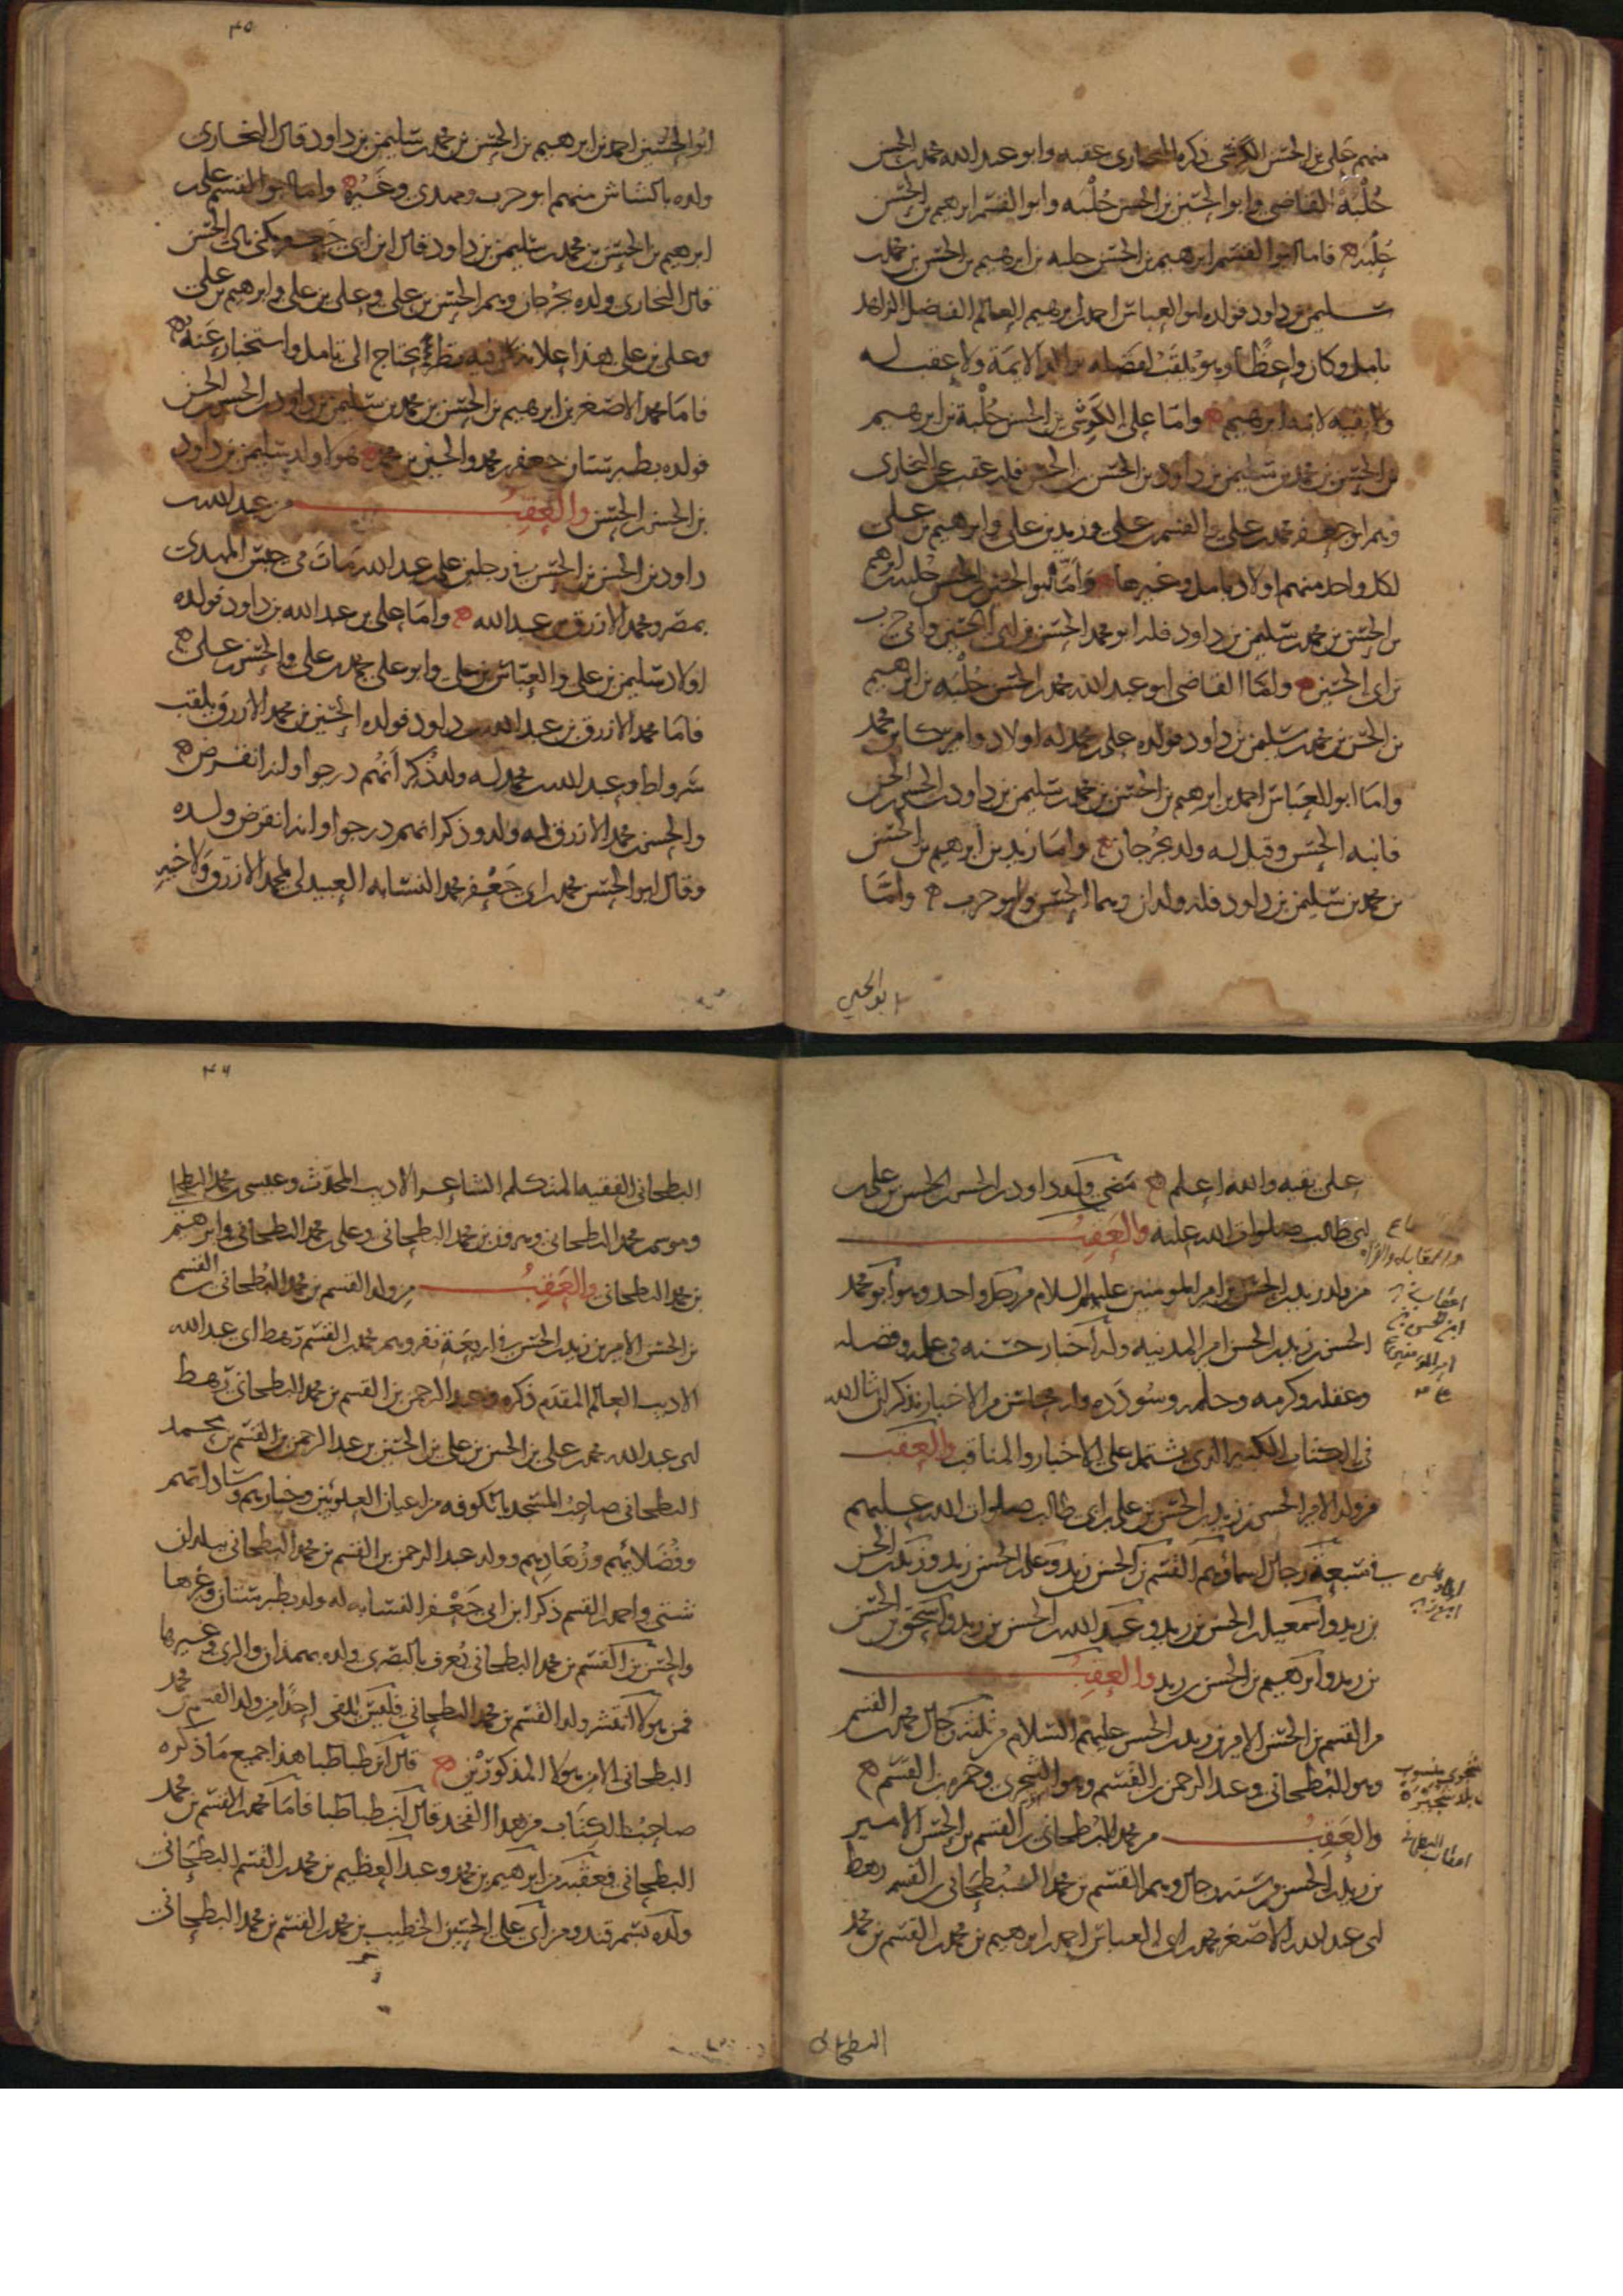 منهم على بن الحسن الكوشى ذكره البخارى عقبه وابو عبد الله محمد بن الحسن
حُلْبَةُ القاضى وابو الحسين بن الحسن حُلْبه وابو القسم ابرهيم بن الحسن
حُلْبَه فاما ابو القسم ابرهيم بن الحسن حلبه بن ابرهيم بن الحسن بن محمد بن
سليمن بن داود فولده ابو العباس احمد بن ابرهيم العالم الفاضل الزاهد
بامل وكان واعظًا وهو يلقب لفضله الايمة ولا عقب له
ولا بقيه لابيه ابرهيم واما على الكَوشى بن الحسن حُلْبة بن ابرهيم
بن الحسن بن محمد بن سليمن بن داود بن الحسن بن الحسن فله عقب عن البخارى
وهم ابو جعفر محمد بن على والقسم بن على وزيد بن على وابرهيم بن على
لكل واحد منهم اولاد بامل وغيرها وامّا ابو الحسين بن الحسن حُلبه بن ابرهيم
بن الحسن بن محمد بن سليمن بن داود فله ابو محمد الحسن بن ابى الحسين وابى حرب
بن ابى الحسين وامّا القاضى ابو عبد الله محمد بن الحسن حُلْبَه بن ابرهيم
بن الحسن بن محمد بن سليمن بن داود فولده على بن محمد له اولاد واميركا بن محمد
وامّا ابو العباس احمد بن ابرهيم بن الحسن بن محمد بن سليمن بن داود بن الحسن بن الحسن
فابنه الحسن وقيل له ولد بجُرجان وامّا زيد بن ابرهيم بن الحسن
بن محمد بن سليمن بن داود فله ولدان وهما الحسن وابو حرب وامّا
ابو الحسين
٤٥
ابو الحسين احمد بن ابرهيم بن الحسن بن محمد بن سليمن بن داود قال البخارى
ولده باكشاش منهم ابو حرب ومهدى وغَيرُه واما ابو القسم على بن
ابرهيم بن الحسن بن محمد بن سليمن بن داود قال ابن ابى جعفر يكنى بابى الحسن
قال البخارى ولده بجُرجان وهم الحسن بن على وعلى بن على وابرهيم بن على
وعلى بن على هذا فيه نظر يحتاج الى تامل واستخبار عَنهُ
فامّا محمد الاصغر بن ابرهيم بن الحسن بن محمد بن سليمن بن داود بن الحسن بن الحسن
فولده بطبرستان جعفر بن محمد والحسين بن محمد فهولا ولد سليمن بن داود
بن الحسن بن الحسن والعَقِبُ من عبد الله بن
داود بن الحسن بن الحسن فى رجلين على بن عبد الله مات فى حبس المهدى
بمصر ومحمد الازرق بن عبد الله وامّا على بن عبد الله بن داود فولده
اولاد سليمن بن على والعباس بن على وابو على محمد بن على والحسن بن على
فاما محمد الازرق بن عبد الله بن داود فولده الحسين بن محمد الازرق يلقب
شَرواط وعبد الله بن محمد له ولد ذُكر أنهم درجوا وانه انقرض
والحسن بن محمد الازرق له ولد وذكر انهم درجوا وانه انقرض ولده
وقال ابو الحسن محمد بن ابى جَعْفر محمد النسّابه العبيدلى لمحمد الازرق ولاخيه
على بقيه والله اعلم مَضى ولد داود بن الحسن بن الحسن بن على بن
ابى طالب صلوات الله عليه والعَقِبُ
من ولد زيد بن الحسن بن امير المومنين عليهم السلام من رجل واحد وهو ابو محمد
اعقاب زيد
ابن الحسن بن
امير المؤمنين
الحسن بن زيد بن الحسن امير المدينه وله أخبار حسنه فى علمه وفضله
وعقله وكرمه وحلمه وسُودَده وله محاسن من الاخبار نذكر ان شا الله
فى الكتاب الكبير الذى يشتمل على الاخبار والمناقب والعقب
من ولد الامير الحسن بن زيد بن الحسن بن على بن ابى طالب صلوات الله عليهم
فى سَبعة رجال اسماؤهم القسم بن الحسن بن زيد وعلى بن الحسن بن زيد وزيد بن الحسن
بن زيد واسمعيل بن الحسن بن زيد وعبد الله بن الحسن بن زيد واسحق بن الحسن
بن زيد وابرهيم بن الحسن بن زيد والعقِبُ
من القسم بن الحسن الامير بن زيد بن الحسن عليهم السّلام من ثلثه رجال محمد بن القسم
وهو البُطحانى وعبد الرحمن بن القسم وهو الشجرى وحمزه بن القسم
شجرى منسوب
والعَقِبُ من محمد البُطحانى بن القسم بن الحسن الامير
اعقاب البطحانى
بن زيد بن الحسن من ستة رجال وهم القسم بن محمد البُطحَانى بن القسم رهط
ابى عبد الله الاصغر محمد بن ابى العباس احمد بن ابرهيم بن محمد بن القسم بن محمد
البطحانى
٤٦
البطحانى الفقيه المتكلم الشاعر الاديب المحدّث وعيسى بن محمد البطحانى
وموسى بن محمد البطحانى وهرون بن محمد البطحانى وعلى بن محمد البطحانى وابرهيم
بن محمد البطحانى والعَقِبُ من ولد القسم بن محمد البُطحانى بن القسم
بن الحسن الامير بن زيد بن الحسن فى اربعَةِ نفر وهم محمد بن القسم رَهط ابى عبد الله
الاديب العالم المقدّم ذكره وعبد الرحمن بن القسم بن محمد البطحانى رهط
ابى عبد الله محمد بن على بن الحسن بن على بن الحسين بن عبد الرحمن بن القسم بن محمد
البطحانى صاحِبُ المسجد بالكوفه من اعيان العلويّين وخيارهم وساداتهم
وفُضَلائِهم وزُهّادِهم وولد عبد الرحمن بن القسم بن محمد البطحانى ببلدان
شتى واحمد بن القسم ذكر ابن ابى جَعْفر النسّابه له ولد بطبرستان وغيرها
والحسن بن القسم بن محمد البطحانى يُعرف بالبَصرى ولده بهمدان والرى وغيرها
فمن هولا انتشر ولد القسم بن محمد البطحانى فليسَ يلقى احدًا من ولد القسم بن محمد
البطحانى الا من هولا المذكورَيْن قال ابن طباطبا هذا جميع مَا ذكره
صاحِبُ الكتاب من هذا الفخذ قال ابن طباطبا فاما محمد بن القسم بن محمد
البطحانى فعقبه من ابرهيم بن محمد وعبد العظيم بن محمد بن القسم البطحانى
ولده بسمرقند ومن ابى على الحسين الخطيب بن محمد بن القسم بن محمد البطحانى